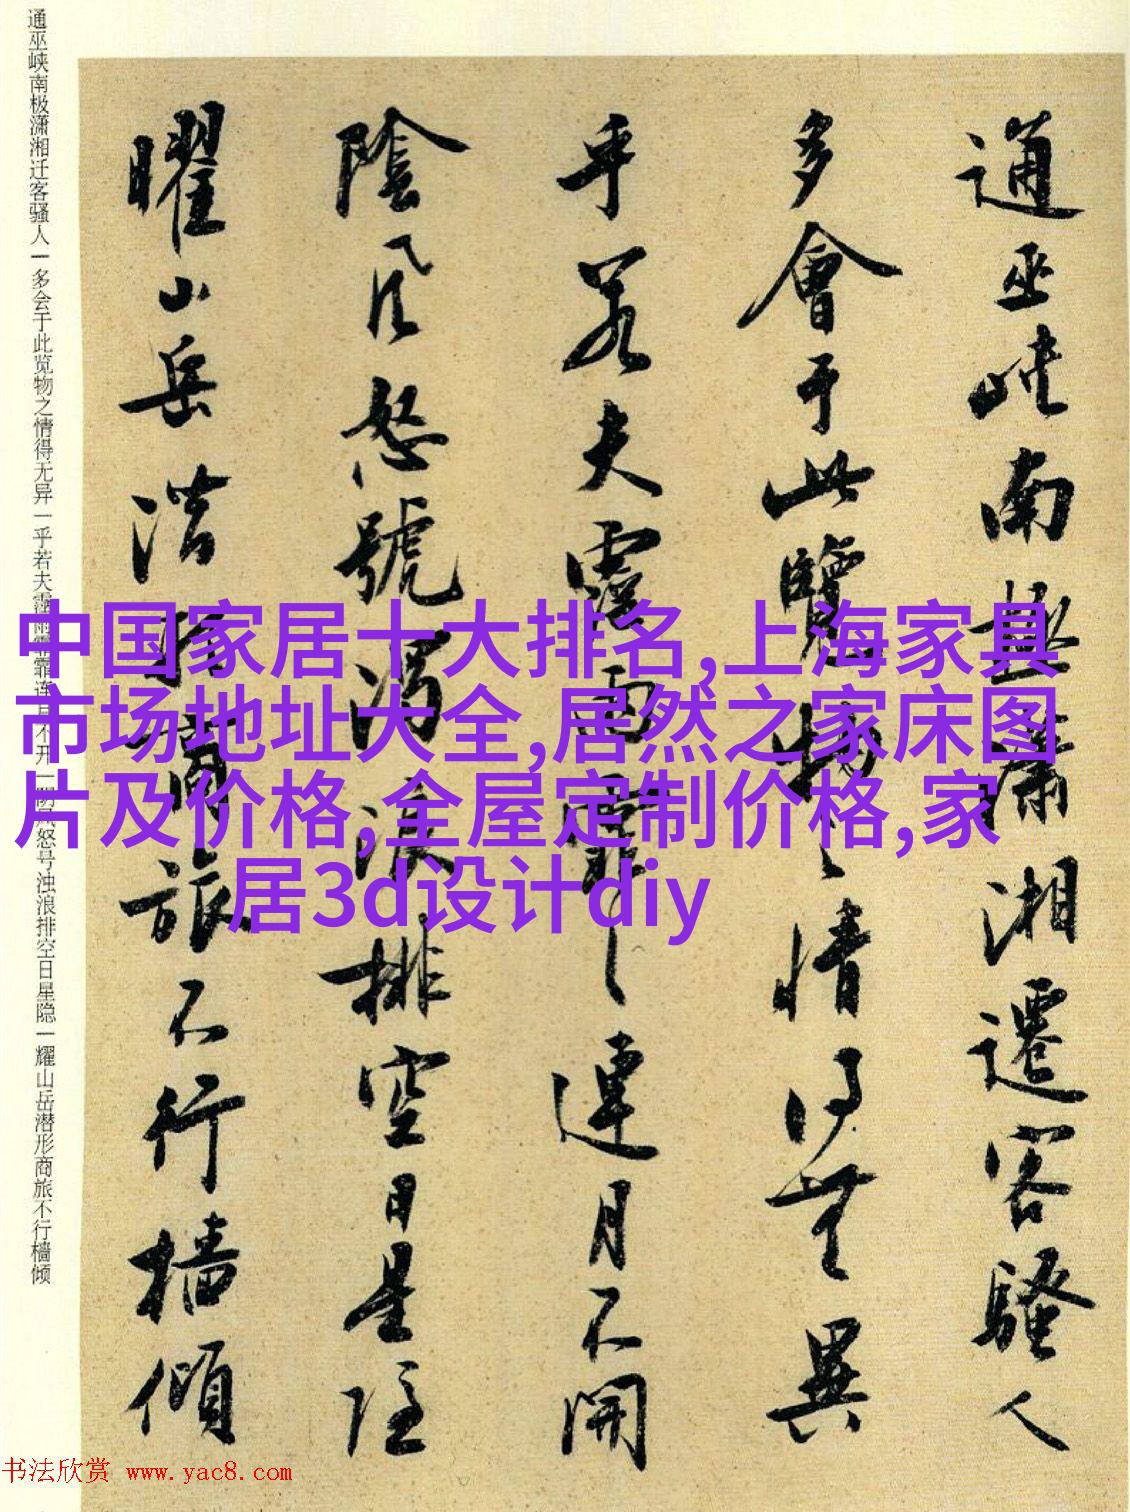 通巫峡南極潇湘遷客騷人
多會于此覽物之情得無異
乎若夫霪雨霏霏連月不開
陰風怒號濁浪排空日星隐
曜山岳潜形商旅不行檣傾
通巫峡南极潇湘迁客骚人一多会于此览物之情得无异一乎若夫霪雨霏霏连月不开一阴风怒号浊浪排空日星隐一耀山岳潜形商旅不行樯倾
中国家居十大排名,上海家具
市场地址大全,居然之家床图
片及价格,全屋定制价格,家
居3d设计diy
书法欣赏 www.yac8.com